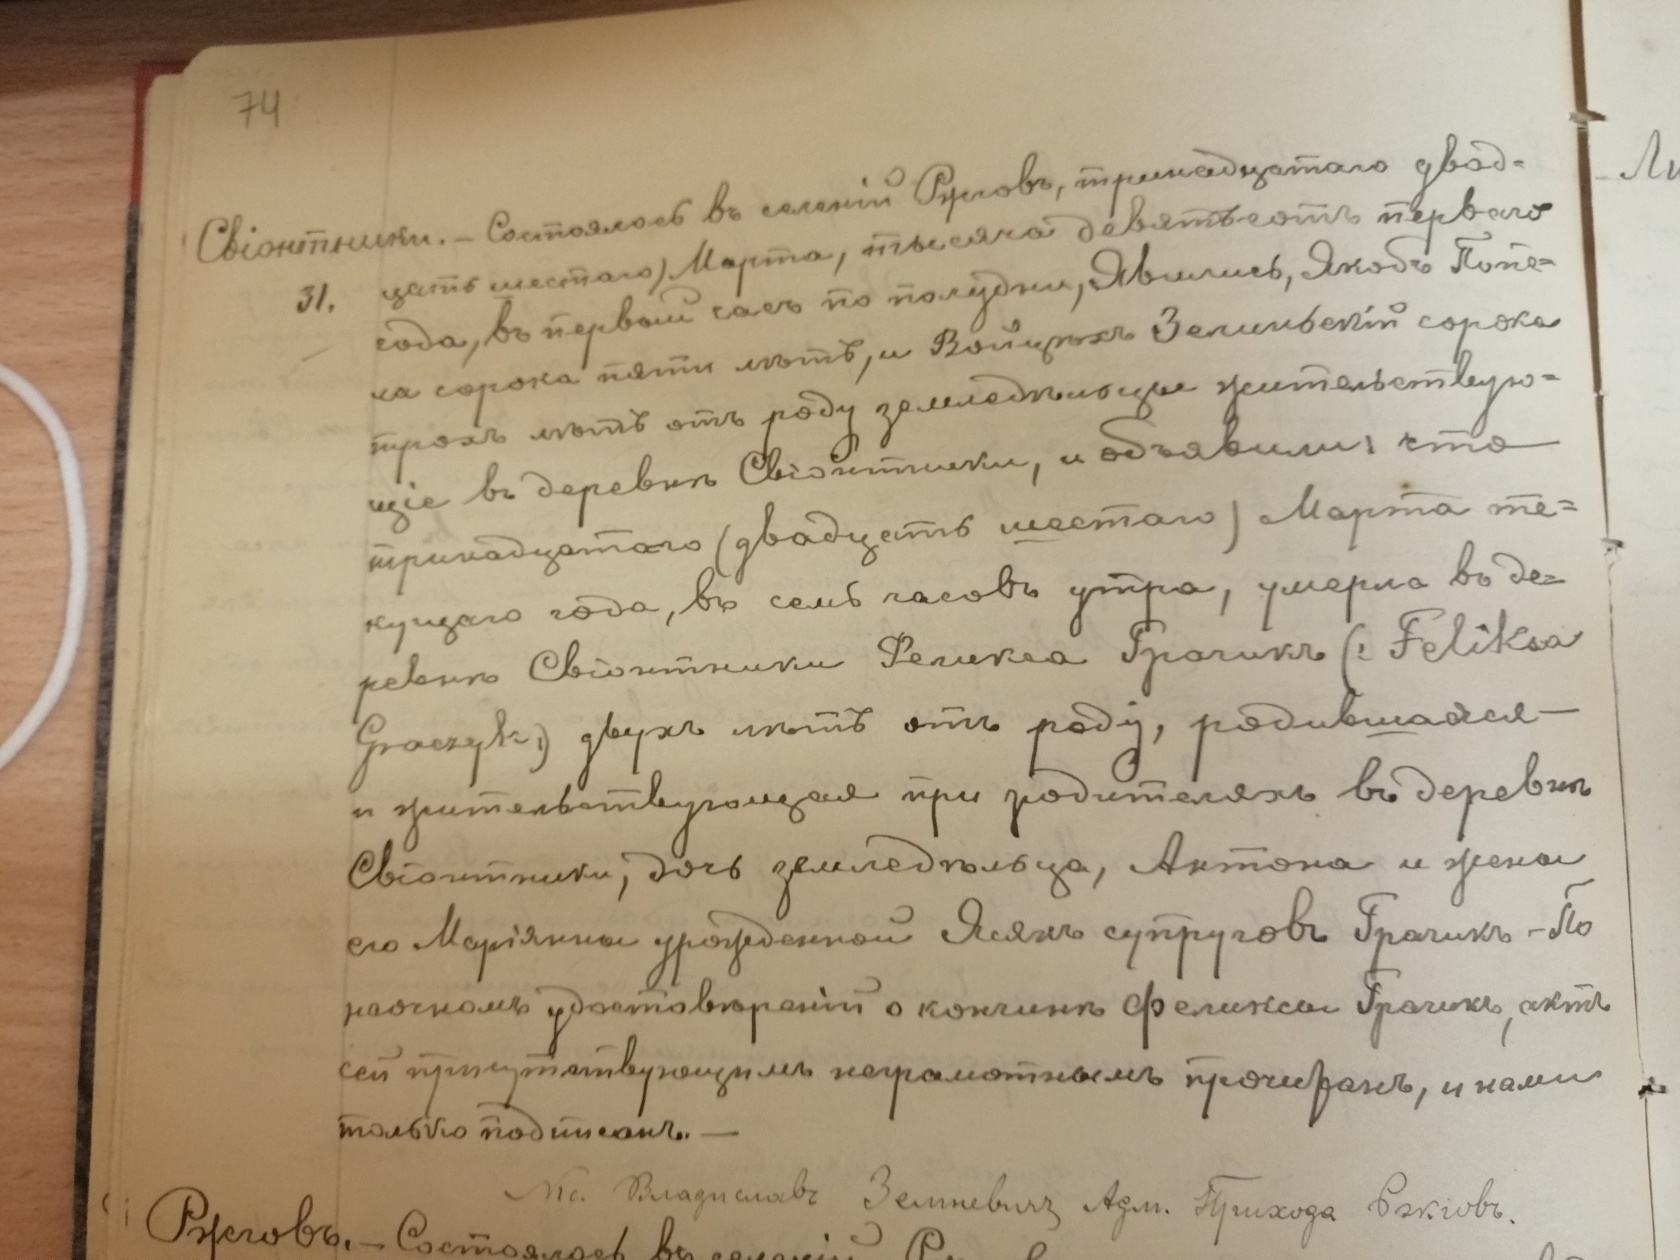 74
Свіонтники. – Состоялось въ селеніи Ржговъ, тринадцатаго двад=
31. цать шестаго) Марта, тысяча девятьсотъ перваго
года, въ первый часъ по полудни, Явились, Якобъ Попе=
ла сорока пяти лѣтъ, и Войцѣхъ Зелиньскій сорока
трохъ лѣтъ отъ роду земледѣльцы жительствую=
щіе въ деревнѣ Свіонтники, и объявили: что
тринадцатаго (двадцать шестаго) Марта те=
кущаго года, въ семь часовъ утра, умерла въ де=
ревнѣ Свіонтники Феликса Грачикъ (: Feliksa
Graczyk:) двухъ лѣтъ отъ роду, родившаяся –
и жительствующая при родителяхъ въ деревнѣ
Свіонтники, дочь земледѣльца, Антона и жены
его Маріянны урожденной Ясякъ супруговъ Грачикъ – По
наочномъ удостовѣреніи о кончинѣ Феликсы Грачикъ, актъ
сей присутствующимъ неграмотнымъ прочитанъ, и нами
только подписанъ. –
Кс. Владиславъ Адм. Прихода Ржговъ.
Ржговъ. – Состоялось въ селеніи